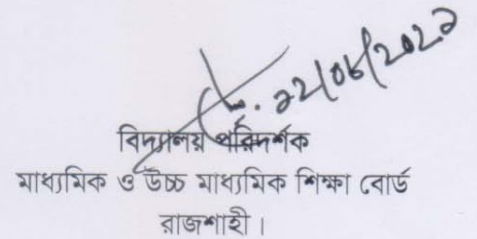 ২২/০৬/২০২১
বিদ্যালয় পরিদর্শক
মাধ্যমিক ও উচ্চ মাধ্যমিক শিক্ষা বোর্ড
রাজশাহী ।